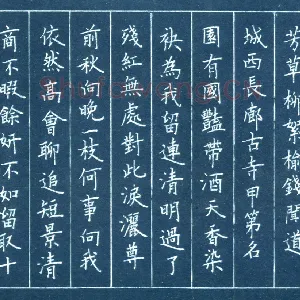 芳草柳絮榆錢聞道
城西長廊古寺甲第名
園有國豔帶酒天香染
袂為我留連清明過了
殘紅無處對此淚灑尊
前秋向晚一枝何事向我
依然高會聊追短景清
商不暇餘妍不如留取十